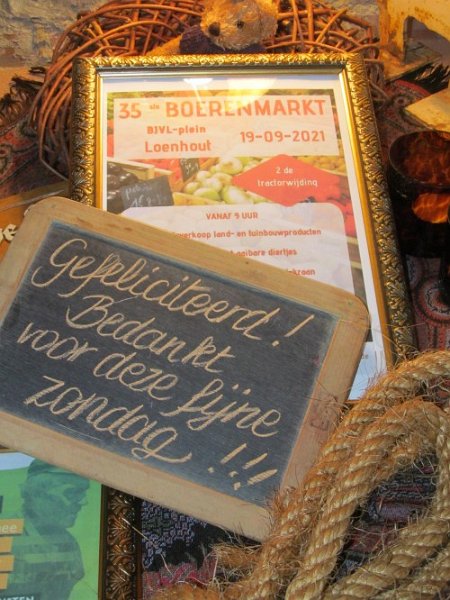 35 ste BOERENMARKT
BJVL-plein
Loenhout 19-09-2021
2 de
tractorwijding
VANAF 9 UUR
verkoop land- en tuinbouwproducten
aaibare diertjes
Gefeliciteerd!
Bedankt
voor deze fijne
zondag!!!